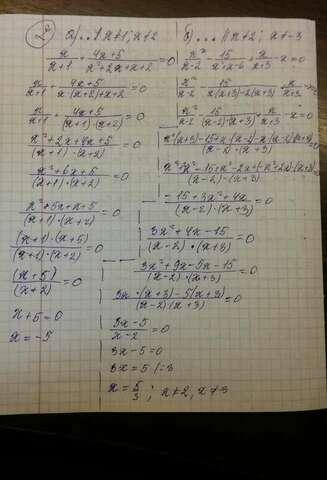 2) а) ... x≠1, x≠2
x/x+1 + 4x+5/x²+2x+x+2 = 0
x/x+1 + 4x+5/x·(x+2)+x+2 = 0
x/x+1 + 4x+5/(x+1)·(x+2) = 0
x²+2x+4x+5/(x+1)·(x+2) = 0
x²+6x+5/(x+1)·(x+2) = 0
x²+5x+x+5/(x+1)·(x+2) = 0
(x+1)·(x+5)/(x+1)·(x+2) = 0
(x+5)/(x+2) = 0
x+5=0
x=-5
б) ... x≠2; x≠-3
x²/x-2 - 15/x²+x-6 + x/x+3 - x=0
x²/x-2 - 15/x(x+3)-2(x+3) + x/x+3
x²/x-2 - 15/(x-2)·(x+3) + x/x+3 - x=0
x²(x+3)-15+x·(x-2)-x(x-2)(x+3)/(x-2)·(x+3) = 0
-15+3x²+4x/(x-2)·(x+3) = 0
3x²+4x-15/(x-2)·(x+3) = 0
3x²+9x-5x-15/(x-2)·(x+3) = 0
3x·(x+3)-5(x+3)/(x-2)·(x+3) = 0
3x-5/x-2 = 0
3x-5=0
3x=5 |:3
x = 5/3 ; x≠2, x≠3